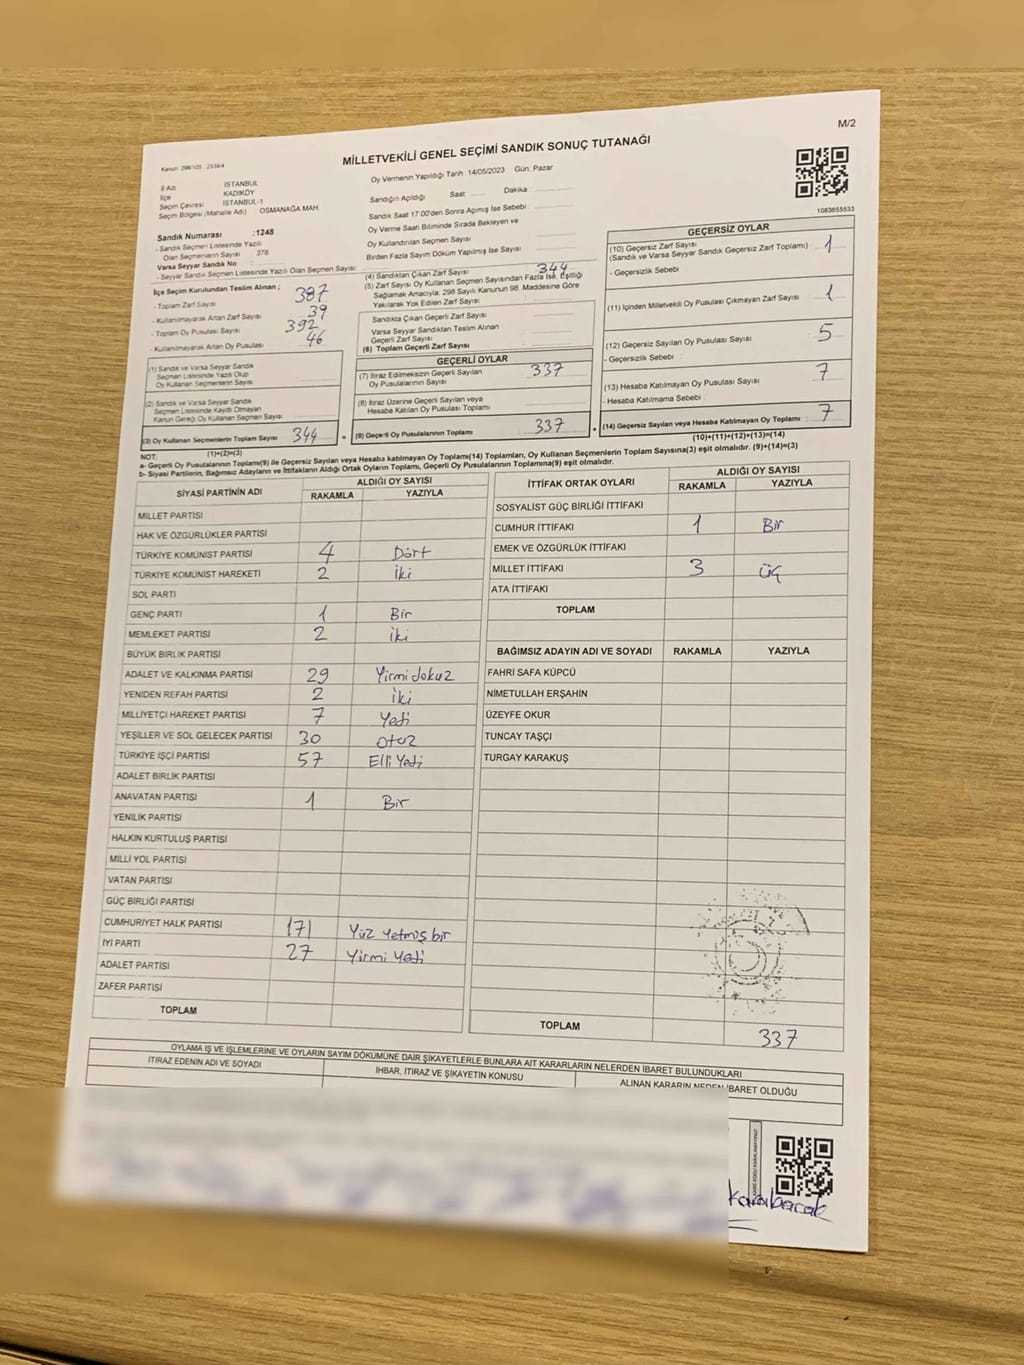 M/2
Kanun: 298/105 , 2839/4
MİLLETVEKİLİ GENEL SEÇİMİ SANDIK SONUÇ TUTANAĞI
1083655533
İl Adı İSTANBUL
İlçe KADIKÖY
Seçim Çevresi İSTANBUL-1
Seçim Bölgesi (Mahalle Adı) OSMANAĞA MAH.
Sandık Numarası :1248
- Sandık Seçmen Listesinde Yazılı
Olan Seçmenlerin Sayısı 378
Varsa Seyyar Sandık No :
- Seyyar Sandık Seçmen Listesinde Yazılı Olan Seçmen Sayısı
İlçe Seçim Kurulundan Teslim Alınan ;
- Toplam Zarf Sayısı 387
- Kullanılmayarak Artan Zarf Sayısı 39
- Toplam Oy Pusulası Sayısı 392
- Kullanılmayarak Artan Oy Pusulası 46
(1) Sandık ve Varsa Seyyar Sandık
Seçmen Listesinde Yazılı Olup
Oy Kullanan Seçmenlerin Sayısı
(2) Sandık ve Varsa Seyyar Sandık
Seçmen Listesinde Kayıtlı Olmayan
Kanun Gereği Oy Kullanan Seçmen Sayısı
(3) Oy Kullanan Seçmenlerin Toplam Sayısı 344 =
(1)+(2)=(3)
Oy Vermenin Yapıldığı Tarih 14/05/2023 Gün: Pazar
Sandığın Açıldığı Saat Dakika
Sandık Saat 17.00'den Sonra Açılmış İse Sebebi
Oy Verme Saati Bitiminde Sırada Bekleyen ve
Oy Kullandırılan Seçmen Sayısı
Birden Fazla Sayım Döküm Yapılmış İse Sayısı
(4) Sandıktan Çıkan Zarf Sayısı 344
(5) Zarf Sayısı Oy Kullanan Seçmen Sayısından Fazla İse, Eşitliği
Sağlamak Amacıyla, 298 Sayılı Kanunun 98. Maddesine Göre
Yakılarak Yok Edilen Zarf Sayısı
Sandıkta Çıkan Geçerli Zarf Sayısı
Varsa Seyyar Sandıktan Teslim Alınan
Geçerli Zarf Sayısı
(6) Toplam Geçerli Zarf Sayısı
GEÇERLİ OYLAR
(7) İtiraz Edilmeksizin Geçerli Sayılan
Oy Pusulalarının Sayısı 337
(8) İtiraz Üzerine Geçerli Sayılan veya
Hesaba Katılan Oy Pusulası Toplamı
(9) Geçerli Oy Pusulalarının Toplamı 337 +
GEÇERSİZ OYLAR
(10) Geçersiz Zarf Sayısı
(Sandık ve Varsa Seyyar Sandık Geçersiz Zarf Toplamı) 1
- Geçersizlik Sebebi
(11) İçinden Milletvekili Oy Pusulası Çıkmayan Zarf Sayısı 1
(12) Geçersiz Sayılan Oy Pusulası Sayısı 5
- Geçersizlik Sebebi :
(13) Hesaba Katılmayan Oy Pusulası Sayısı 7
- Hesaba Katılmama Sebebi :
(14) Geçersiz Sayılan veya Hesaba Katılmayan Oy Toplamı : 7
(10)+(11)+(12)+(13)=(14)
NOT:
a- Geçerli Oy Pusulalarının Toplamı(9) ile Geçersiz Sayılan veya Hesaba katılmayan Oy Toplamı(14) Toplamları, Oy Kullanan Seçmenlerin Toplam Sayısına(3) eşit olmalıdır. (9)+(14)=(3)
b- Siyasi Partilerin, Bağımsız Adayların ve İttifakların Aldığı Ortak Oyların Toplamı, Geçerli Oy Pusulalarının Toplamına(9) eşit olmalıdır.
SİYASİ PARTİNİN ADI ALDIĞI OY SAYISI
RAKAMLA YAZIYLA
MİLLET PARTİSİ
HAK VE ÖZGÜRLÜKLER PARTİSİ
TÜRKİYE KOMÜNİST PARTİSİ 4 Dört
TÜRKİYE KOMÜNİST HAREKETİ 2 İki
SOL PARTİ
GENÇ PARTİ 1 Bir
MEMLEKET PARTİSİ 2 İki
BÜYÜK BİRLİK PARTİSİ
ADALET VE KALKINMA PARTİSİ 29 Yirmi dokuz
YENİDEN REFAH PARTİSİ 2 İki
MİLLİYETÇİ HAREKET PARTİSİ 7 Yedi
YEŞİLLER VE SOL GELECEK PARTİSİ 30 Otuz
TÜRKİYE İŞÇİ PARTİSİ 57 Elli Yedi
ADALET BİRLİK PARTİSİ
ANAVATAN PARTİSİ 1 Bir
YENİLİK PARTİSİ
HALKIN KURTULUŞ PARTİSİ
MİLLİ YOL PARTİSİ
VATAN PARTİSİ
GÜÇ BİRLİĞİ PARTİSİ
CUMHURİYET HALK PARTİSİ 171 Yüz yetmiş bir
İYİ PARTİ 27 Yirmi Yedi
ADALET PARTİSİ
ZAFER PARTİSİ
TOPLAM
İTTİFAK ORTAK OYLARI ALDIĞI OY SAYISI
RAKAMLA YAZIYLA
SOSYALİST GÜÇ BİRLİĞİ İTTİFAKI
CUMHUR İTTİFAKI 1 Bir
EMEK VE ÖZGÜRLÜK İTTİFAKI
MİLLET İTTİFAKI 3 Üç
ATA İTTİFAKI
TOPLAM
BAĞIMSIZ ADAYIN ADI VE SOYADI RAKAMLA YAZIYLA
FAHRİ SAFA KÜPCÜ
NİMETULLAH ERŞAHİN
ÜZEYFE OKUR
TUNCAY TAŞÇI
TURGAY KARAKUŞ
TOPLAM 337
OYLAMA İŞ VE İŞLEMLERİNE VE OYLARIN SAYIM DÖKÜMÜNE DAİR ŞİKAYETLERLE BUNLARA AİT KARARLARIN NELERDEN İBARET BULUNDUKLARI
İTİRAZ EDENİN ADI VE SOYADI İHBAR, İTİRAZ VE ŞİKAYETİN KONUSU ALINAN KARARIN NEDEN İBARET OLDUĞU
Karabacak